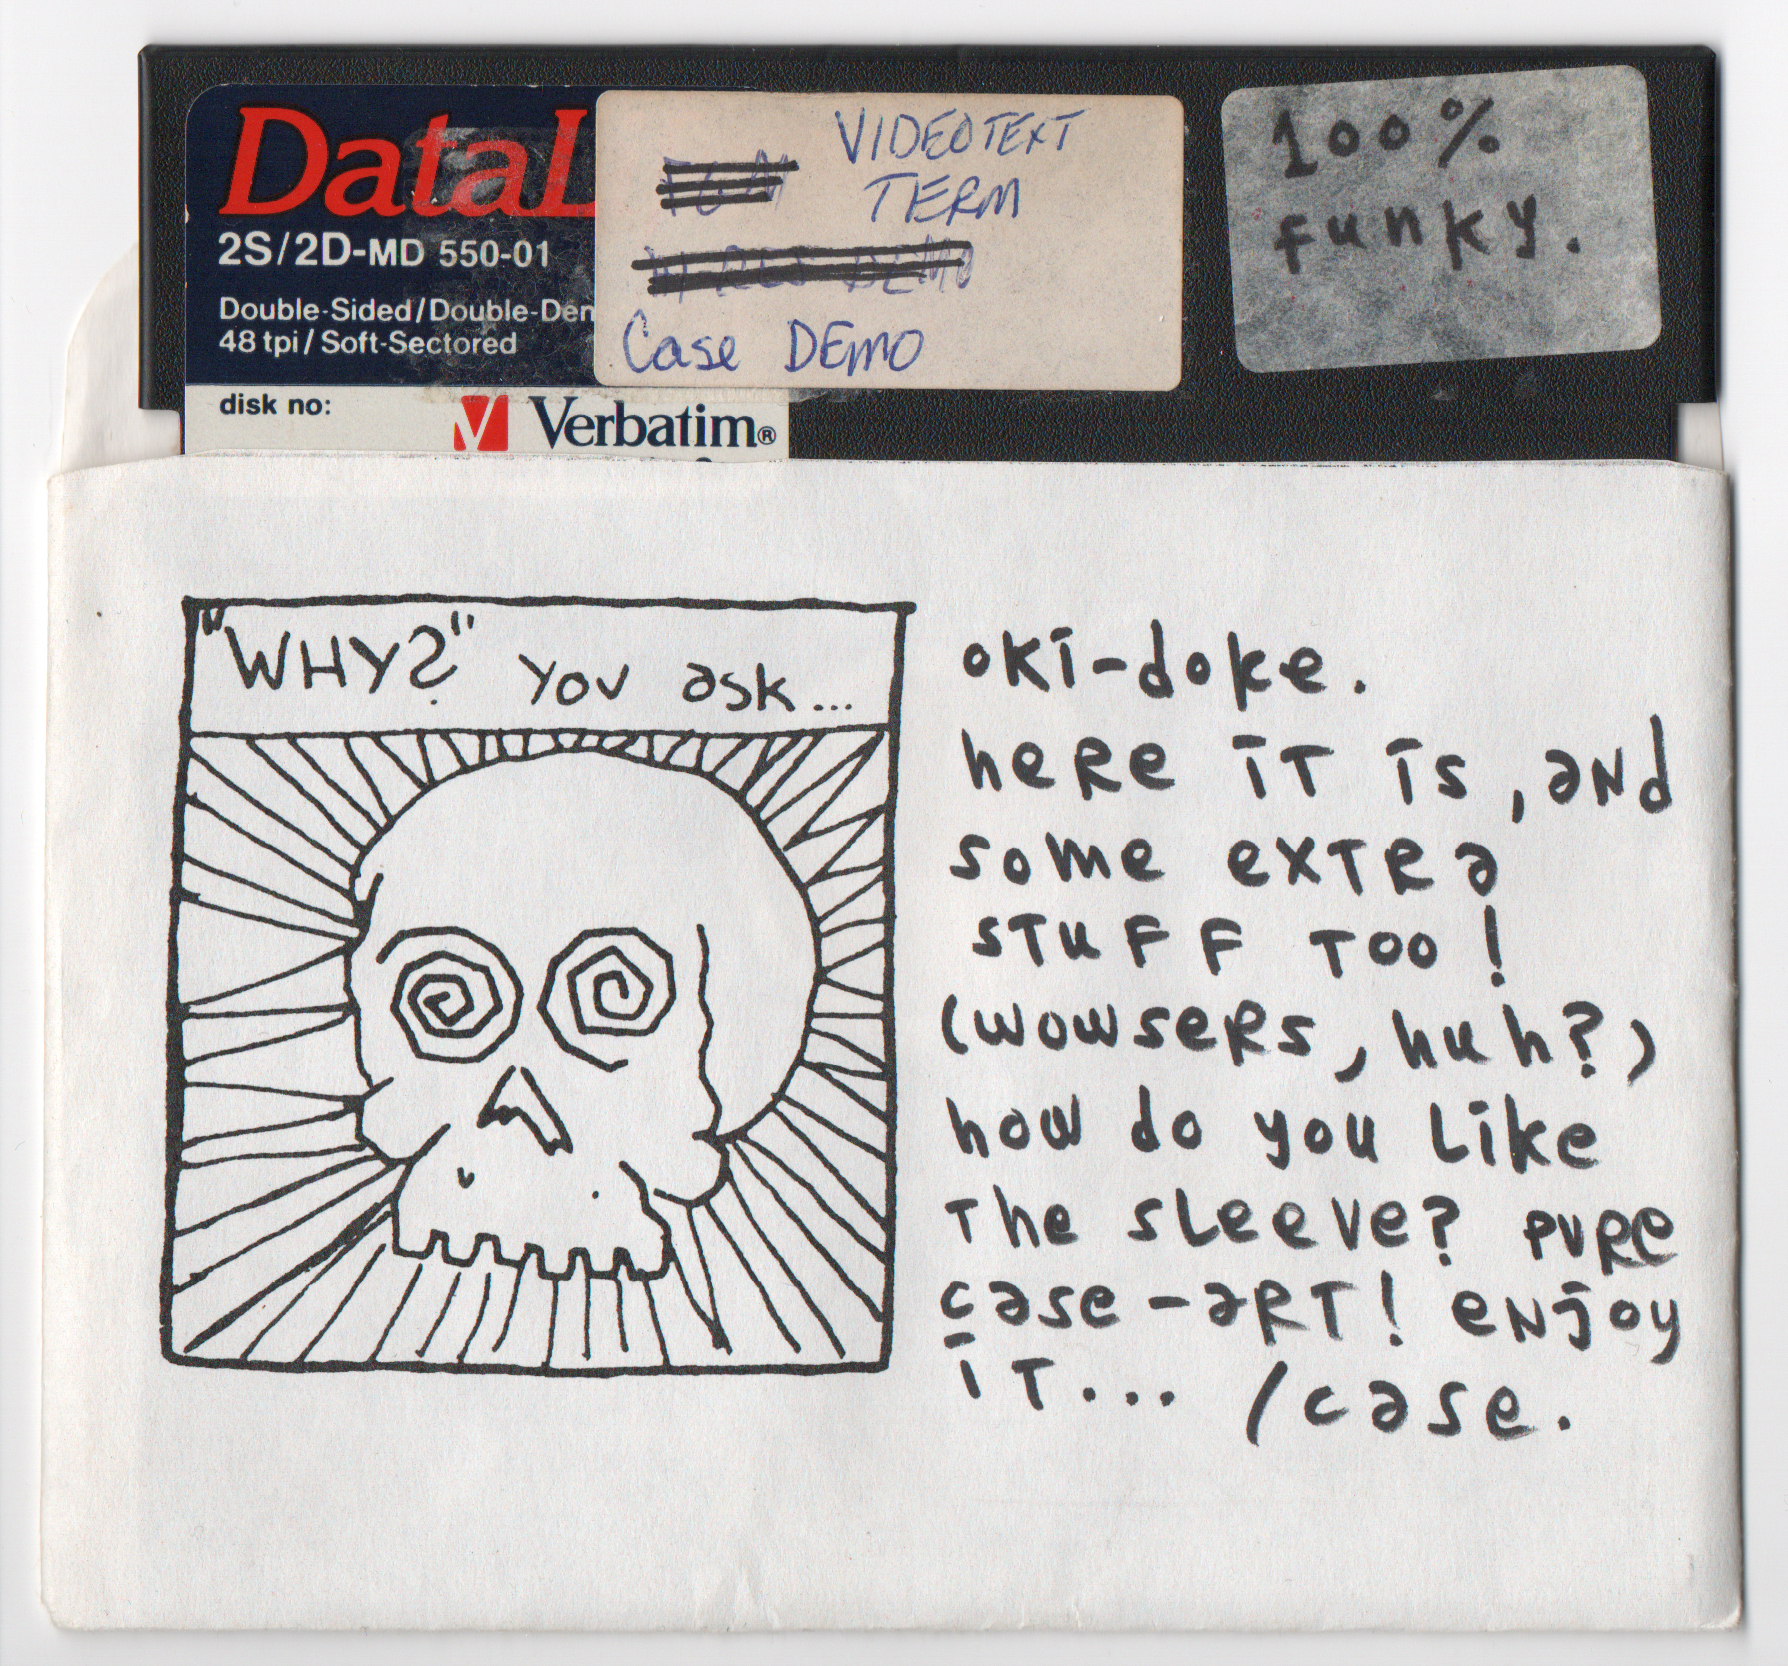 DataL
2S/2D-MD 550-01
Double-Sided/Double-Den
48 tpi/Soft-Sectored
disk no:
Verbatim®
VIDEOTEXT
TERM
DEMO
Case DEMO
100%
funky.
"WHY?" you ask...
oki-doke.
here it is, and
some extra
stuff too!
(wowsers, huh?)
how do you like
the sleeve? pure
case-art! enjoy
it... /case.